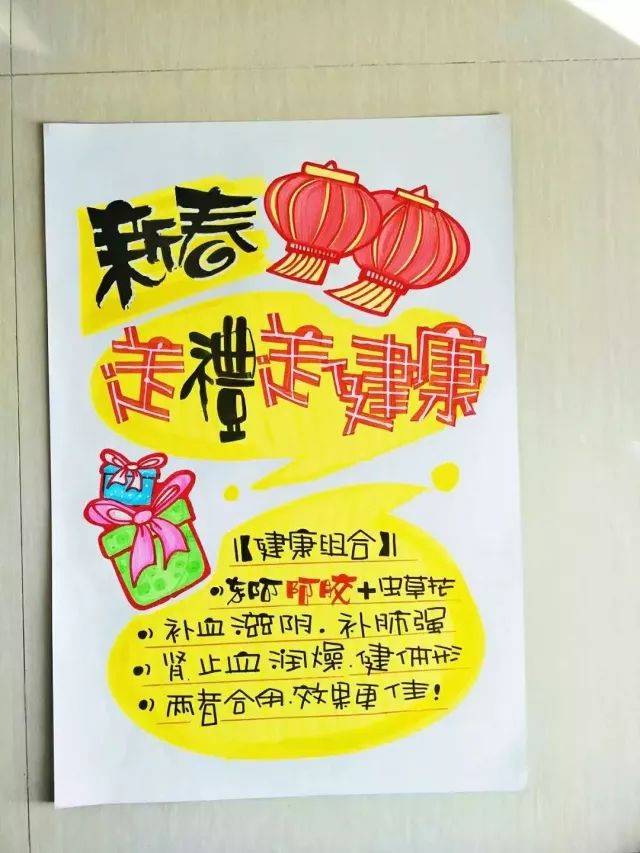 新春
送禮送健康
【健康组合】
•东阿阿胶+虫草花
•补血滋阴.补肺强
•肾止血润燥.健体形
•两者合用.效果更佳!